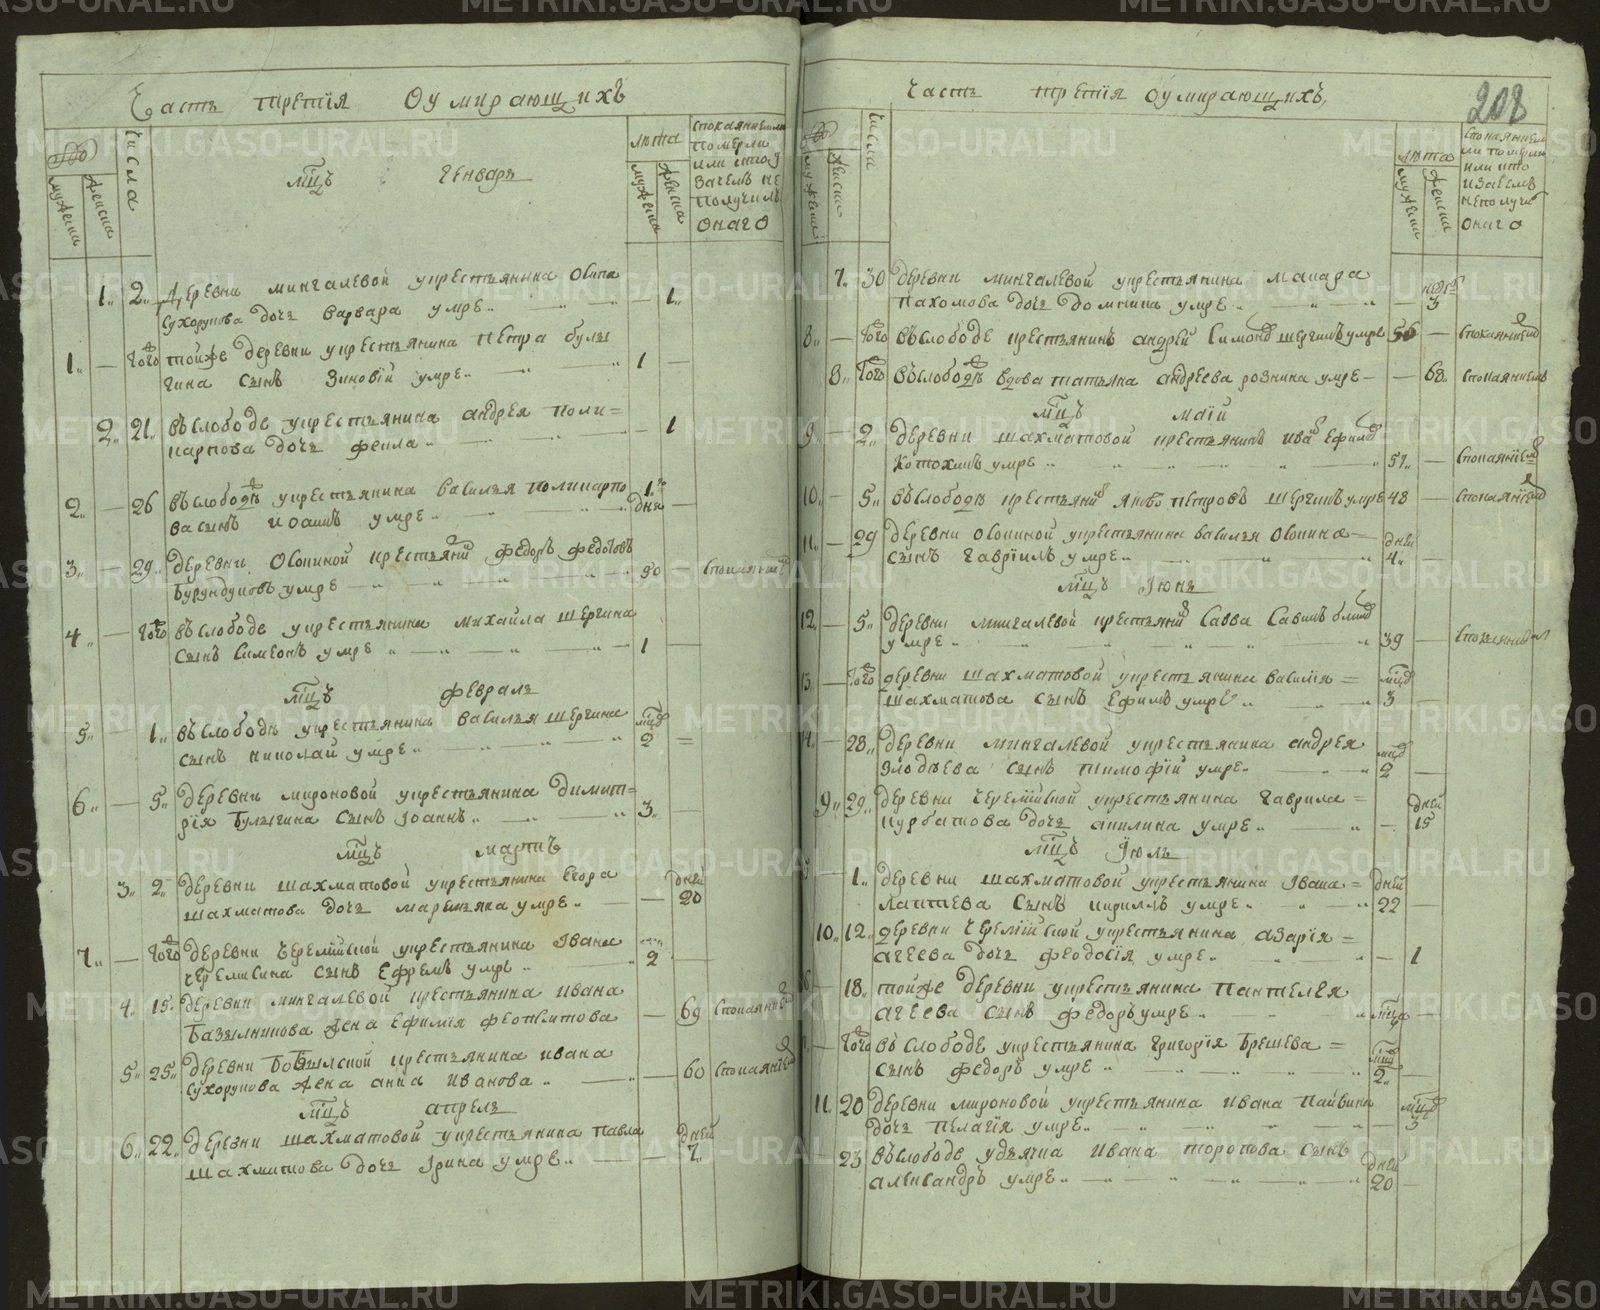 Часть третія О умирающихъ
числа
лѣта
мужеска
женска
мужеска
женска
мцъ Генварь
спокаяниемли
померли
или ктои
зачемъ не
получилъ
онаго
1„ 2„ деревни мингалевой укрестьянина Осипа
Сухорукова дочь варвара умре — 1„
1„ — того тойже деревни укрестьянина Петра булы
гина сынъ Зиновій умре — 1 —
2„ 21„ въслободе укрестьянина андрея поли=
карпова дочь фекла — 1
2„ — 26 въслободѣ укрестьянина василья поликарпо
ва сынъ иоаннъ умре дня 1 —
3„ — 29„ деревни Осокиной крестьянинъ федоръ федотовъ
Бурундуковъ умре 90 — спокаяниемъ
4„ — того въслободе укрестьянина михайла шергина
сынъ Симеонъ умре 1 —
мцъ февраль
5„ — 1„ въслободѣ укрестьянина василья шергина
сынъ николай умре 2
6„ — 5„ деревни мироновой укрестьянина димит=
рія Булыгина сынъ Іоаннъ 3„ —
мцъ мартъ
3„ 2„ деревни шахматовой укрестьянина Егора
шахматова дочь маремьяна умре — дней 20
7„ — того деревни черемійской укрестьянина Івана
черемисина сынъ Ефремъ умре 2 —
4„ 15„ деревни мингалевой крестьянина ивана
Базылникова жена Ефимія феоктистова — 69 спокаяниемъ
5„ 25„ деревни Бобылской крестьянина ивана
Сухорукова жена анна иванова — 60 спокаяниемъ
мцъ апрель
6„ 22„ деревни шахматовой укрестьянина павла
шахматова дочь Ірина умре — дней 7„
Часть третія О умирающихъ
208
числа
мужеска
женска
лѣта
мужеска
женска
спокаяниемъ
ли померли
или кто
изачемъ
неполучи
онаго
7„ 30 деревни мингалевой укрестьянина макара
Пахомова дочь домника умре — 3
8„ — того въслободе крестьянинъ андрей Симоновъ шергинъ умре 56 — спокаяниемъ
8„ того въслободѣ вдова татьяна андреева рознина умре — 68„ спокаяниемъ
мцъ маій
9„ — 2„ деревни шахматовой крестьянинъ иванъ Ефимовъ
Котохинъ умре 51„ — спокаяниемъ
10„ — 5„ въслободѣ крестьянинъ яковъ петровъ шергинъ умре 48 — спокаяниемъ
11„ — 29 деревни Осокиной укрестьянина василья Осокина
сынъ гаврііль умре дней 4„ —
мцъ Іюнь
12„ — 5„ деревни мингалевой крестьянинъ Савва Савинъ
умре 39 — спокаяниемъ
13„ — того деревни шахматовой укрестьянина василія =
шахматова сынъ Ефимъ умре 3 —
14„ — 28„ деревни мингалевой укрестьянина андрея
Злодѣева сынъ тимофій умре 2 —
9„ 29„ деревни черемійской укрестьянина гаврила =
курбатова дочь акилина умре — дней 15
мцъ Іюль
— 1„ деревни шахматовой укрестьянина Івана =
Лаптева сынъ кириллъ умре дней 22 —
10„ 12„ деревни черемійской укрестьянина азарія =
агеева дочь феодосія умре — 1
— 18„ тойже деревни укрестьянина пантелея
агеева сынъ федоръ умре —
— того въслободе укрестьянина григорія Брешева =
сынъ федоръ умре 2„ —
11„ 20 деревни мироновой укрестьянина ивана пайвина
дочь пелагія умре — 3
23 въслободе удьячка ивана торопова сынъ
александръ умре дней 20 —
METRIKI.GASO-URAL.RU